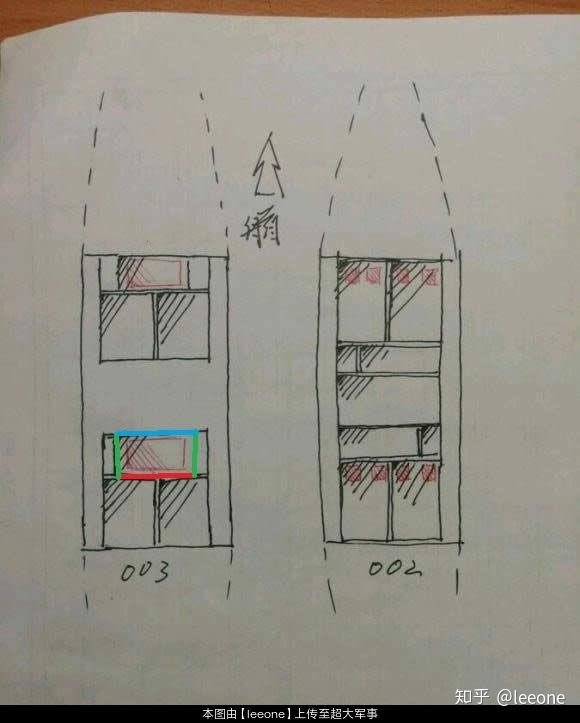 艏
003
002
知乎 @leeone
本图由【leeone】上传至超大军事